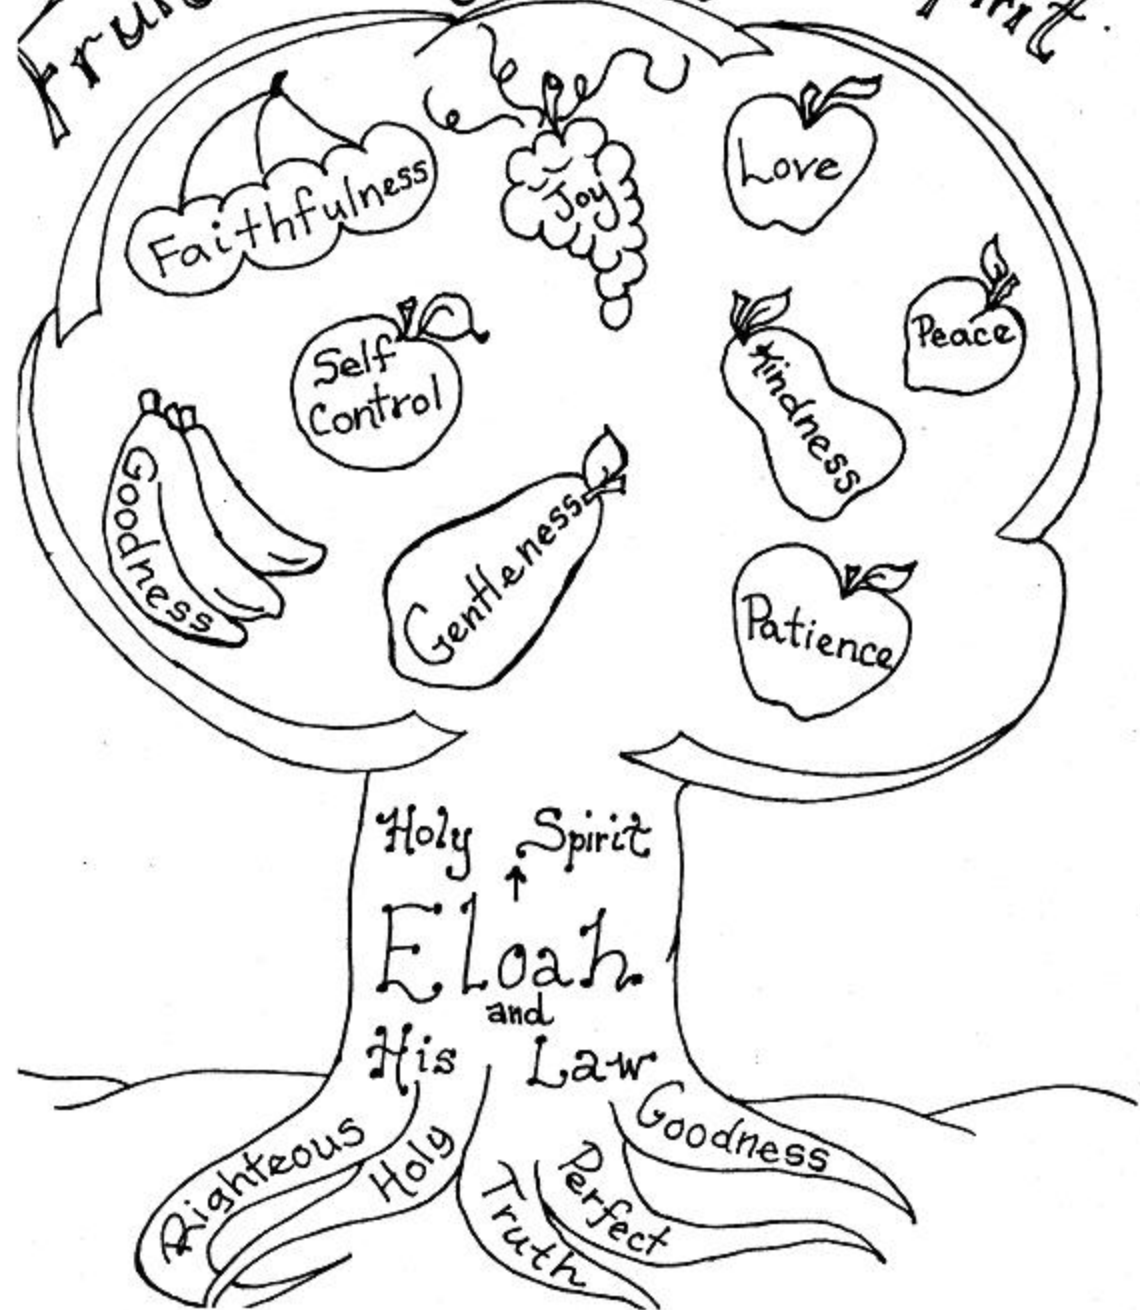 Faithfulness
Joy
Love
Self
Control
Kindness
Peace
Goodness
Gentleness
Patience
Holy Spirit
ELoah
and
His Law
Righteous
Holy
Truth
Perfect
Goodness